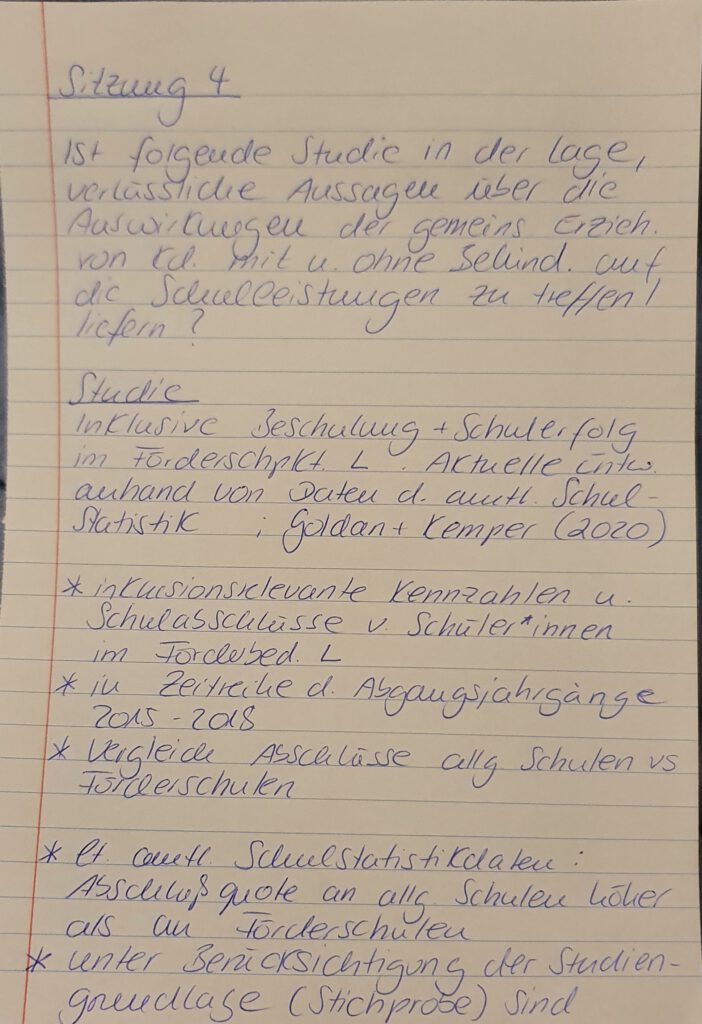 Sitzung 4
Ist folgende Studie in der Lage,
verlässliche Aussagen über die
Auswirkungen der gemeins Erzieh.
von Kd. mit u. ohne Behind. auf
die Schulleistungen zu treffen/
liefern?
Studie
Inklusive Beschulung + Schulerfolg
im Förderschpkt. L. Aktuelle Entw.
anhand von Daten d. amtl. Schul-
statistik ; Goldan + Kemper (2020)
* inklusionsrelevante Kennzahlen u.
Schulabschlüsse v. Schüler*innen
im Förderbed. L
* in Zeitreihe d. Abgangsjahrgänge
2015 - 2018
* Vergleich Abschlüsse allg Schulen vs
Förderschulen
* lt. amtl. Schulstatistikdaten:
Abschlußquote an allg Schulen höher
als an Förderschulen
* unter Berücksichtigung der Studien-
grundlage (Stichprobe) sind